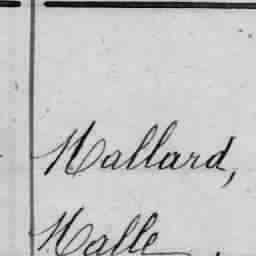 Mallard,
Malle